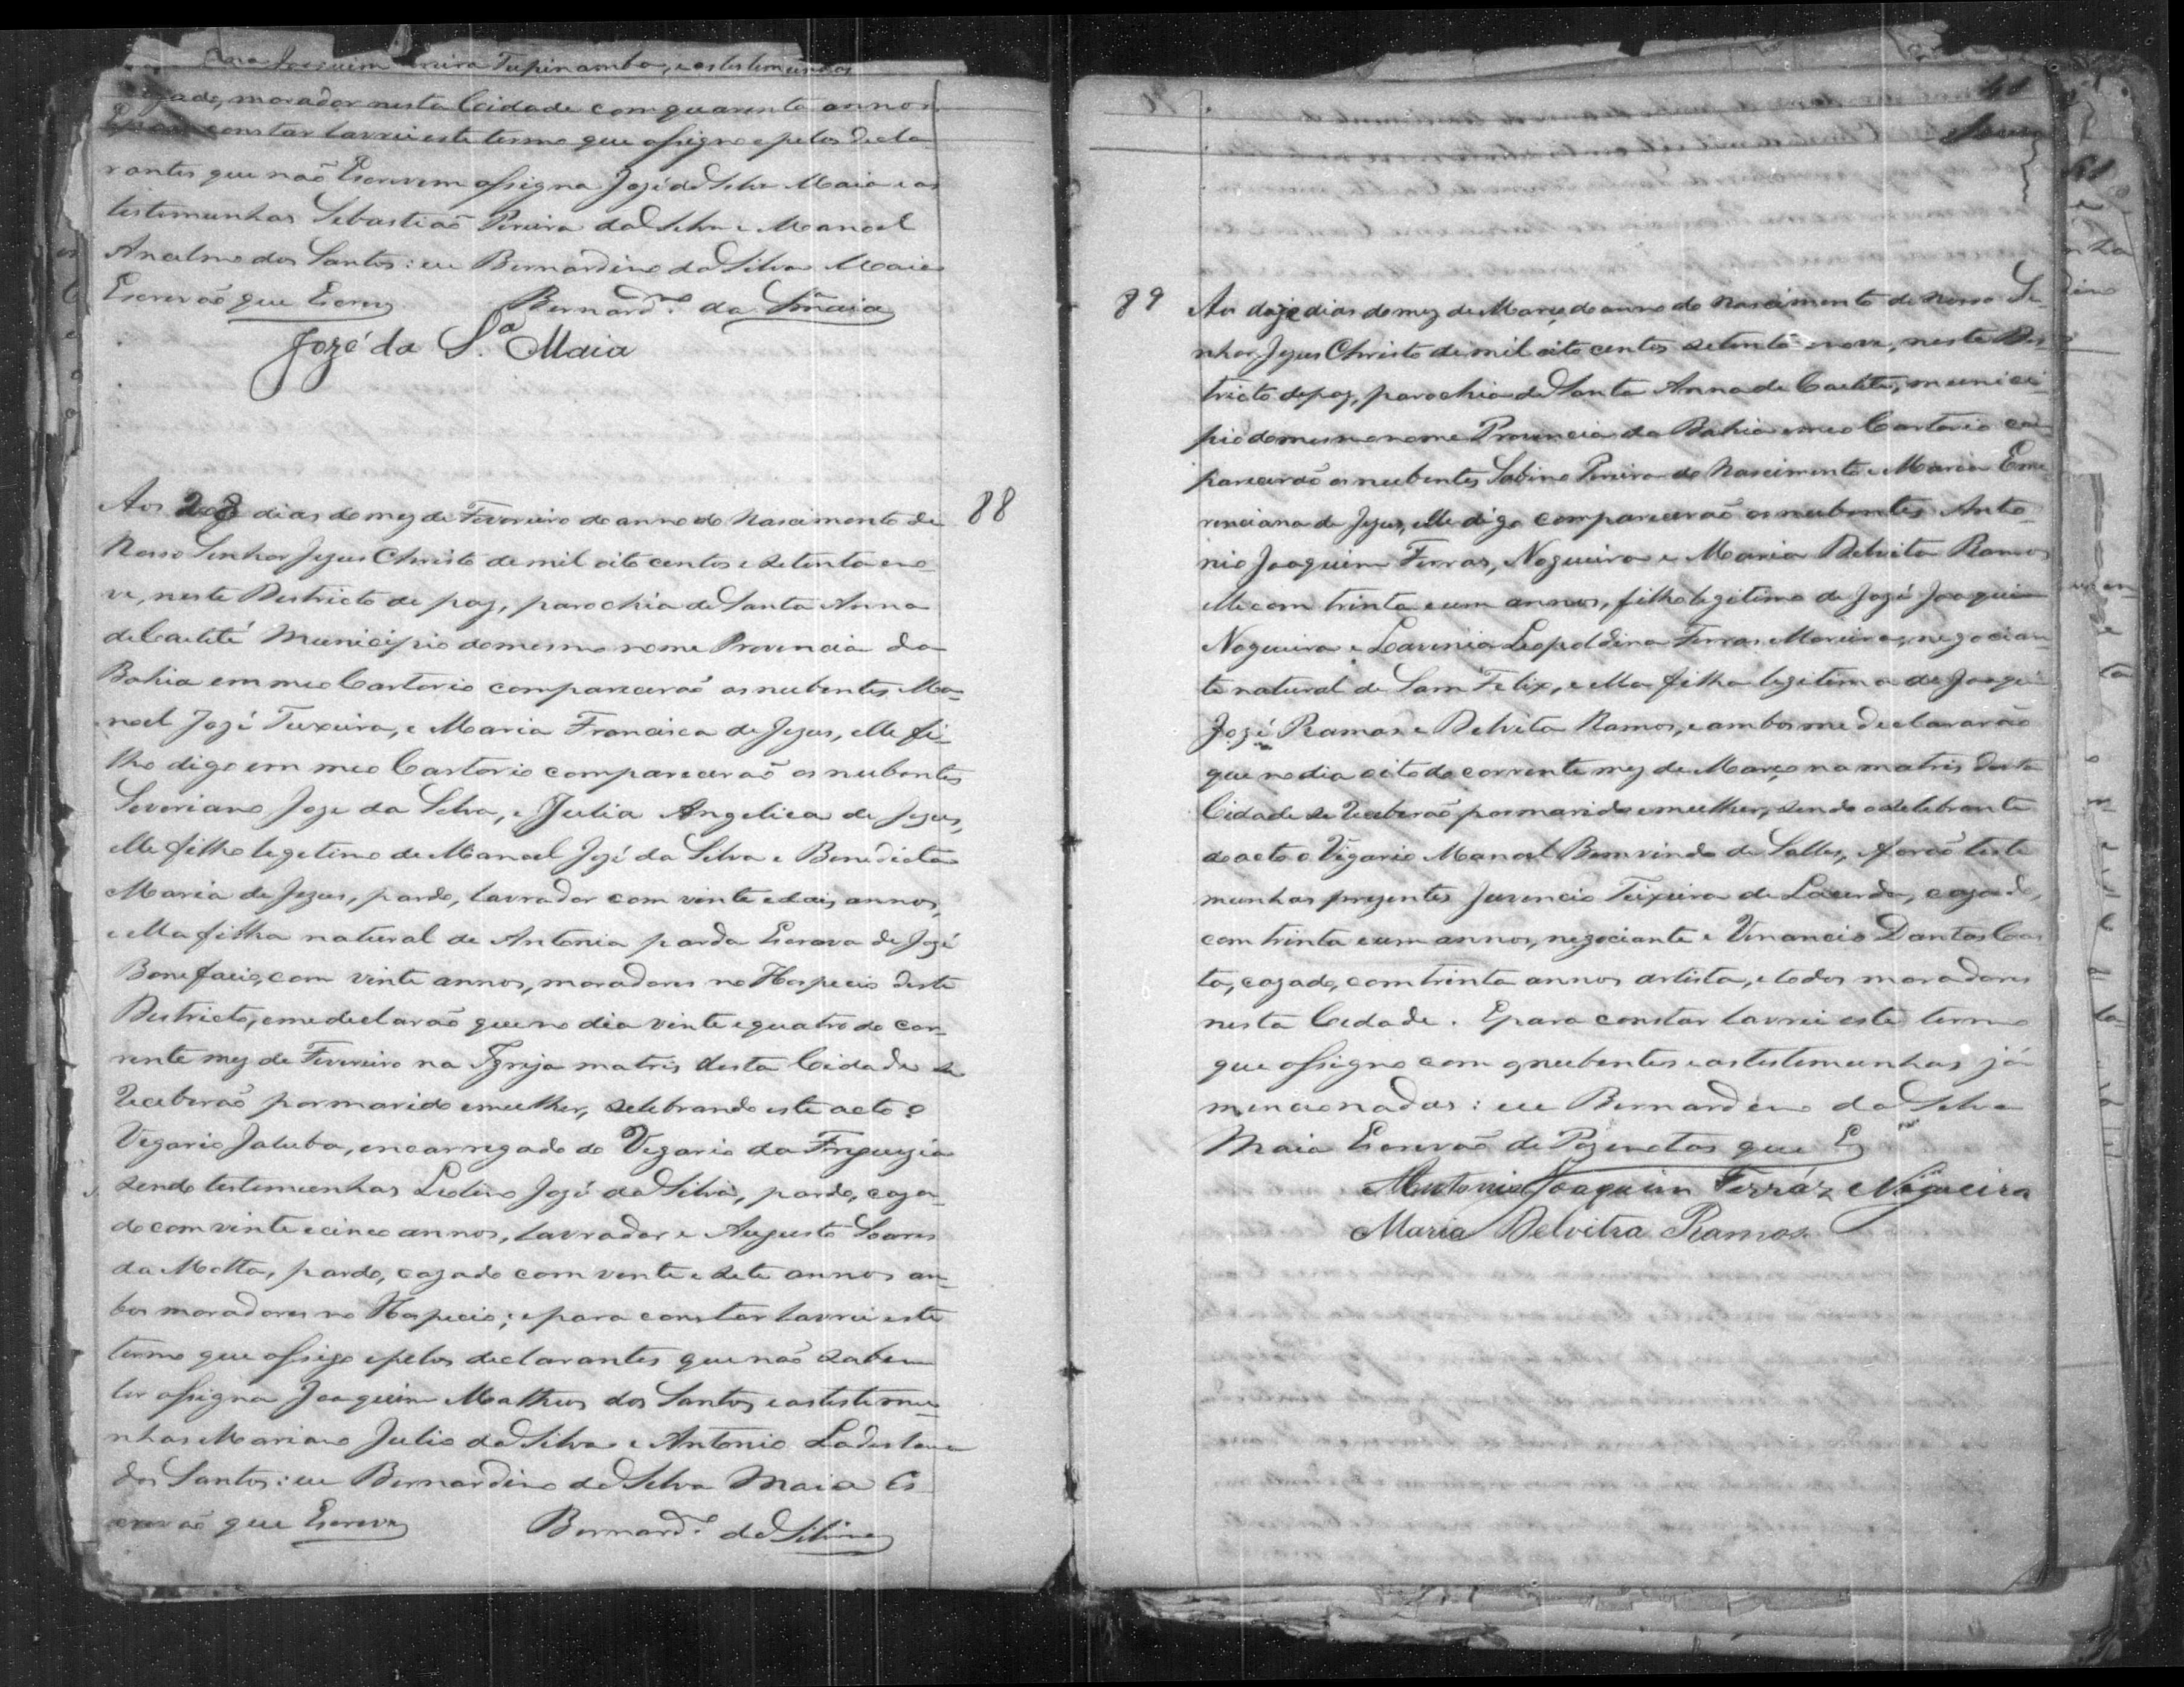 Joaquim Pereira Tupinamba, e as testemunhas
morador nesta Cidade com quarenta annos
E para constar lavrei este termo que assigno e pelos decla
rantes que naõ Escrevem assigna José da Silva Maia e as
testimunhas Sebastiaõ Pereira da Silva e Manoel
Anselmo dos Santos: eu Bernardino da Silva Maia
Escrivaõ que Escrevy Bernard.º da S.ª Maia
Jozé da S.ª Maia
88
Aos 28 dias do mez de Fevereiro do anno do Nascimento de
Nosso Senhor Jezus Christo de mil oito centos e setenta eno
ve, neste Destricto de paz, parochia de Santa Anna
de Caetité Municipio do mesmo nome Provencia da
Bahia em meo Cartorio compareceraõ os nubentes Ma-
noel Jozé Teixeira, e Maria Francisca de Jezus, elle fi-
lho digo em meo Cartorio compareceraõ os nubentes
Severiano Joze da Silva, e Julia Angelica de Jezus,
elle filho legetimo de Manoel Jozé da Silva e Benedicta
Maria de Jezus, pardo, lavrador com vinte e dois annos,
e ella filha natural de Antonia parda Escrava de Jozé
Bonefacio, com vinte annos, moradores no Hospecio deste
Destricto, eme declaraõ que no dia vinte e quatro do cor-
rente mez de Fevereiro na Igreja matris desta Cidade se
Receberaõ por marido emulher, selebrando este acto o
Vegario Jatuba, encarregado do Vegario da Freguezia
sendo testemunhas Leolino Jozé da Silva, pardo, caza-
do com vinte e cinco annos, lavrador e Augusto Soares
da Motta, pardo, cazado com vente e sete annos am-
bos moradores no Hospecio; e para constar lavrei este
termo que assigo e pelos declarantes que naõ sabem
ler assigna Joaquim Matheus dos Santos e as testemu-
nhas Mariano Julio da Silva e Antonio Ladeslau
dos Santos: eu Bernardino da Silva Maia Es
crivaõ que Escrevy Bernard.º da Silva
89
Aos doze dias do mez de Março do anno do Nascimento de Nosso Se-
nhor Jezus Christo de mil oito centos setenta enove, neste Des-
tricto de paz, parochia de Santa Anna de Caetité, munici-
pio do mesmo nome Provencia da Bahia em meo Cartorio com
pareceraõ os nubentes Sabino Pereira do Nascimento e Maria Eme
renciana de Jezus, elle digo compareceraõ os nubentes Anto-
nio Joaquim Ferras, Nogueira e Maria Delvita Ramos
elle com trinta e um annos, filho legitimo de Jozé Joaquim
Nogueira e Lavinia Leopoldina Ferras Moreira, negocian-
te natural de Sam Felix, e ella filha legitima de Joaquim
Jozé Ramos e Delvita Ramos, e ambos me declararaõ
que no dia oito do corrente mez de Março na matris desta
Cidade se Receberaõ por marido emulher, sendo o selebrante
do acto o Vigario Manoel Bemvindo de Salles, e foraõ teste
munhas prezentes Juvencio Teixeira de Lacerda, cazado,
com trinta e um annos, negociante e Venancio Dantas Cos
ta, cazado, com trinta annos artista, e todos moradores
nesta Cedade. E para constar lavrei este termo
que assigno com os nubentes e as testemunhas já
mencionadas: eu Bernardino da Silva
Maia Escrivaõ de Paz que Es
Antonio Joaquim Ferráz Nogueira
Maria Delvitra Ramos